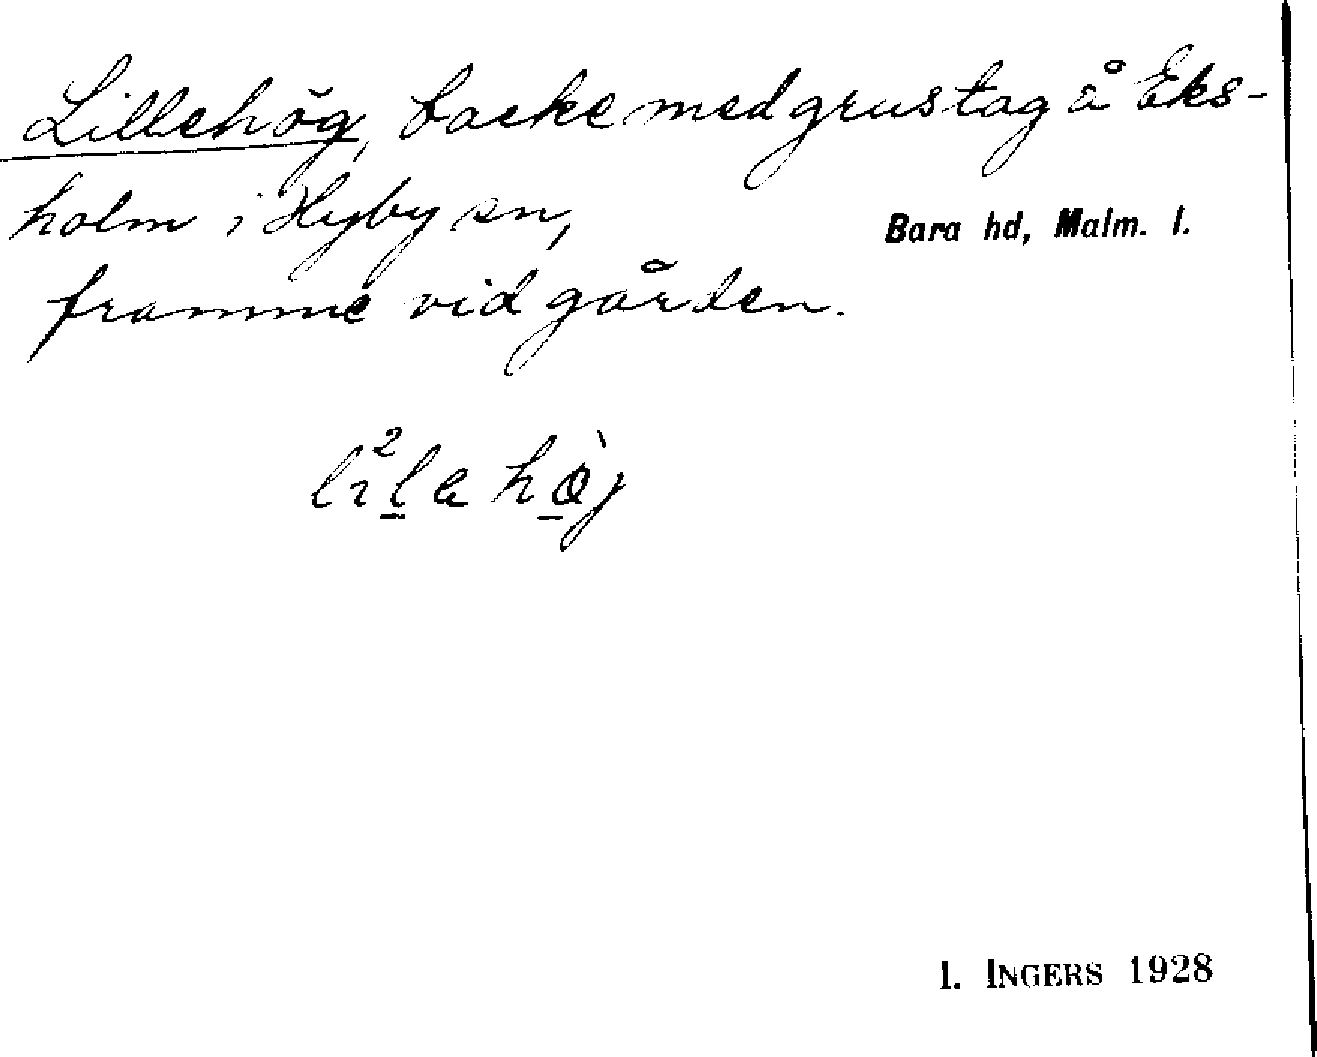 Lillehög, backe med grustag å Eks-
holm i Hyby sn,
Bara hd, Malm. l.
framme vid gården.
I. INGERS 1928